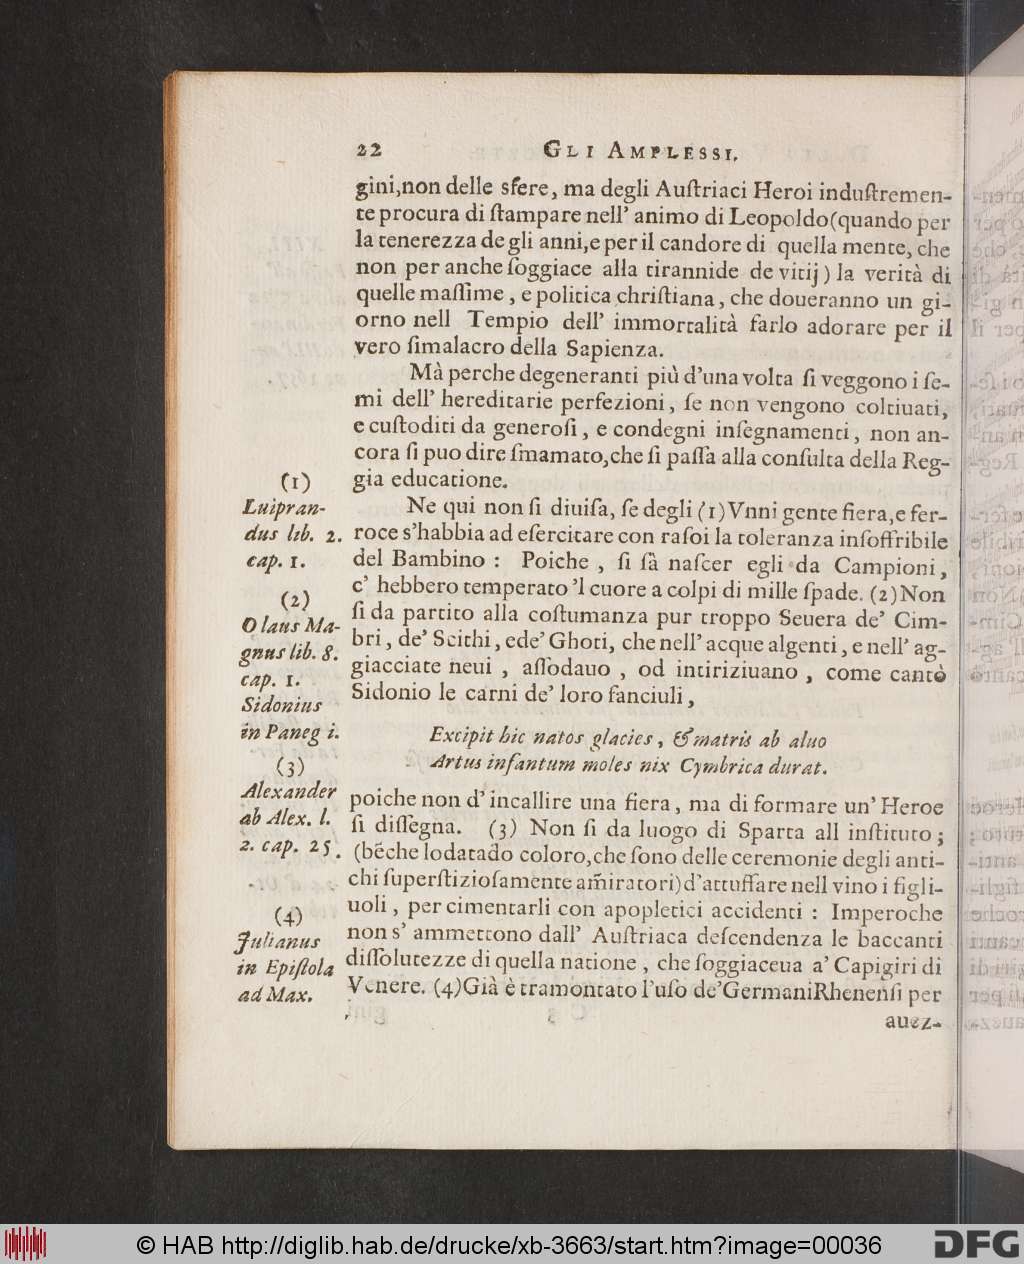 22 GLI AMPLESSI.
gini,non delle sfere, ma degli Auſtriaci Heroi induſtremen-
te procura di ſtampare nell' animo di Leopoldo(quando per
la tenerezza de gli anni,e per il candore di quella mente, che
non per anche ſoggiace alla tirannide de vitij) la verità di
quelle maſſime, e politica chriſtiana, che doueranno un gi-
orno nell Tempio dell' immortalità farlo adorare per il
vero ſimalacro della Sapienza.
Mà perche degeneranti più d'una volta ſi veggono i ſe-
mi dell' hereditarie perfezioni, ſe non vengono coltiuati,
e cuſtoditi da generoſi, e condegni inſegnamenti, non an-
cora ſi puo dire ſmamato,che ſi paſſa alla conſulta della Reg-
gia educatione.
Ne qui non ſi diuiſa, ſe degli (1)Vnni gente fiera,e fer-
roce s'habbia ad eſercitare con raſoi la toleranza inſoffribile
del Bambino: Poiche, ſi fà naſcer egli da Campioni,
c' hebbero temperato 'l cuore a colpi di mille ſpade. (2)Non
ſi da partito alla coſtumanza pur troppo Seuera de' Cim-
bri, de' Scithi, ede' Ghoti, che nell' acque algenti, e nell' ag-
giacciate neui, aſſodauo, od intiriziuano, come cantò
Sidonio le carni de' loro fanciuli,
Excipit hic natos glacies, & matris ab aluo
Artus infantum moles nix Cymbrica durat.
poiche non d' incallire una fiera, ma di formare un' Heroe
ſi diſſegna. (3) Non ſi da luogo di Sparta all inſtituto;
(bēche lodatado coloro,che ſono delle ceremonie degli anti-
chi ſuperſtizioſamente am̃iratori) d'attuffare nell vino i figli-
uoli, per cimentarli con apopletici accidenti: Imperoche
non s' ammettono dall' Auſtriaca deſcendenza le baccanti
diſſolutezze di quella natione, che ſoggiaceua a' Capigiri di
Venere. (4)Già è tramontato l'uſo de'GermaniRhenenſi per
auez-
(1)
Luipran-
dus lib. 2.
cap. 1.
(2)
Olaus Ma-
gnus lib. 8.
cap. 1.
Sidonius
in Paneg i.
(3)
Alexander
ab Alex. l.
2. cap. 25.
(4)
Julianus
in Epiſtola
ad Max.
© HAB http://diglib.hab.de/drucke/xb-3663/start.htm?image=00036
DFG